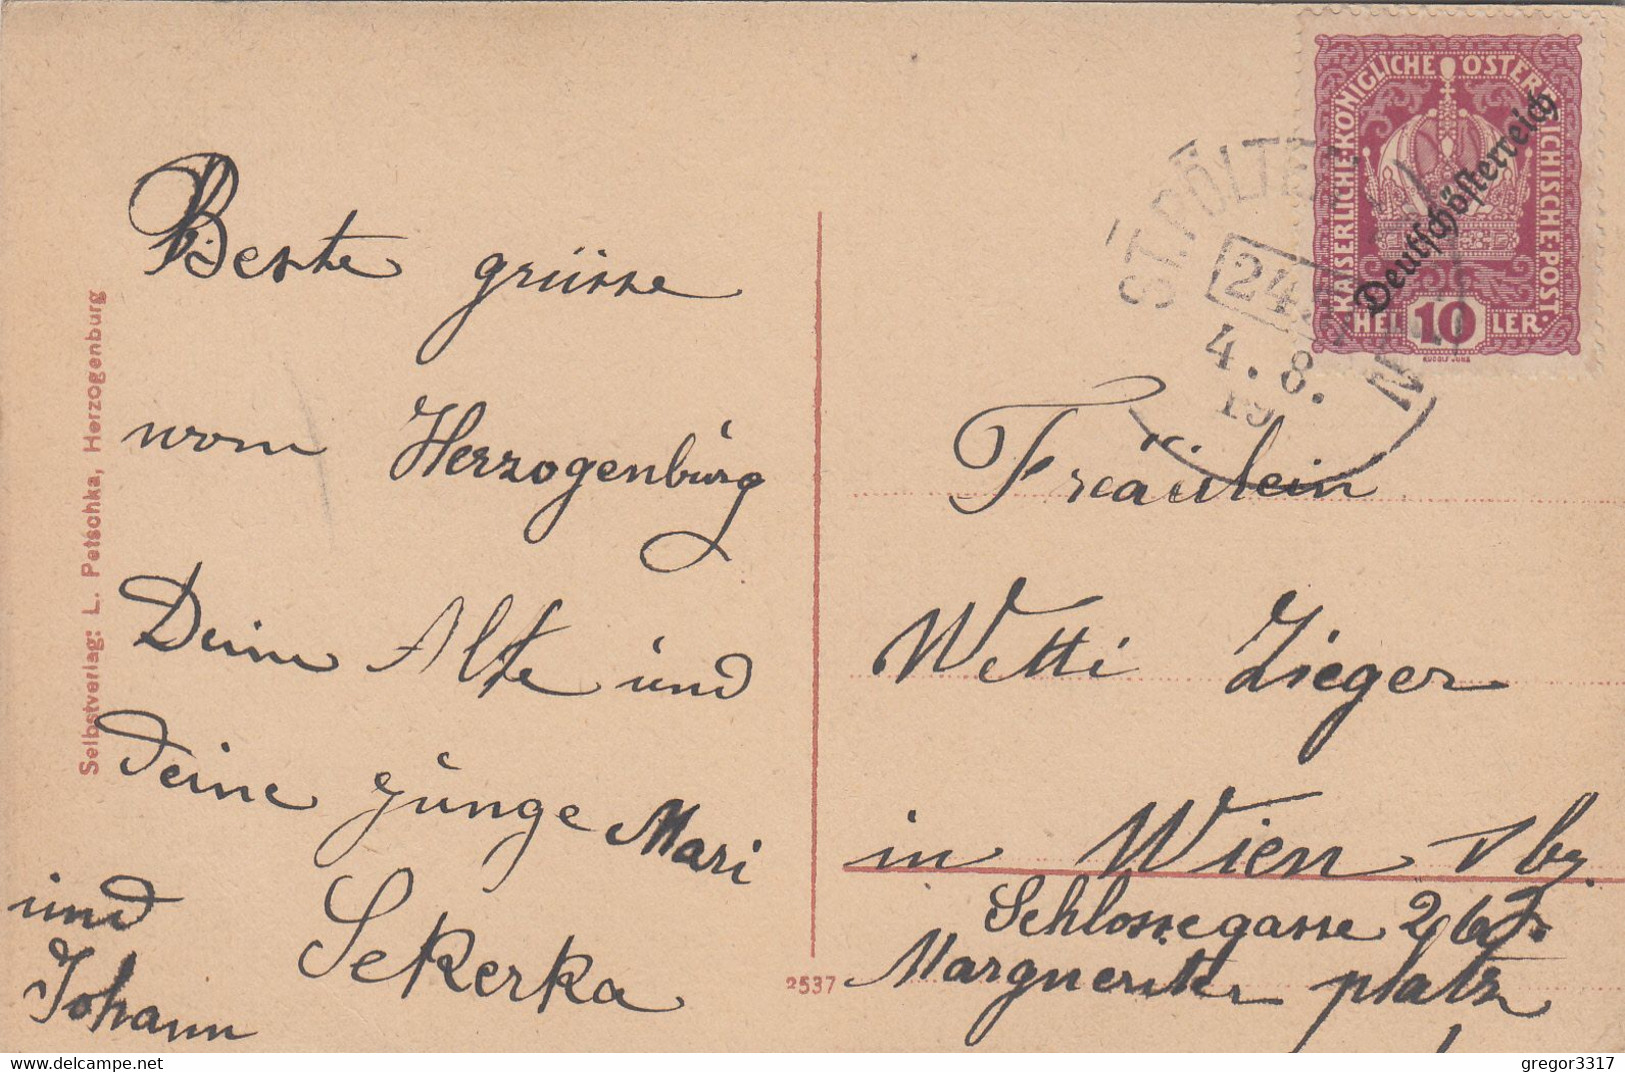 Beste grüsse
vom Herzogenburg
Deine Alte und
deine junge Mari
und Sekerka
Johann
Selbstverlag: L. Petschka, Herzogenburg
2537
KAISERLICHE·KÖNIGLICHE ÖSTERREICHISCHE·POST·
Deutschösterreich
HEL 10 LER·
RUDOLF JUNG
ST. PÖLTEN
24
4.8.
19
Fräulein
Wetti Zieger
in Wien
Schlossegasse
platz
gregor3317